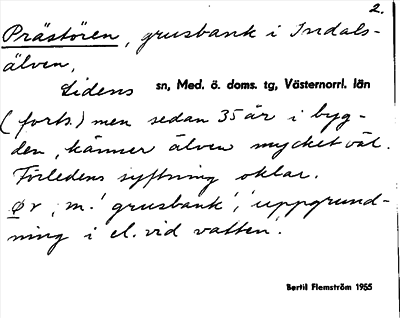 2.
Prästören, grusbank i Indals-
älven,
Lidens sn, Med. ö. doms. tg, Västernorrl. län
(forts.) men sedan 35 år i byg-
den, känner älven mycket väl.
Förledens syftning oklar.
ør, m. 'grusbank', 'uppgrund-
ning i el. vid vatten'.
Bertil Flemström 1955